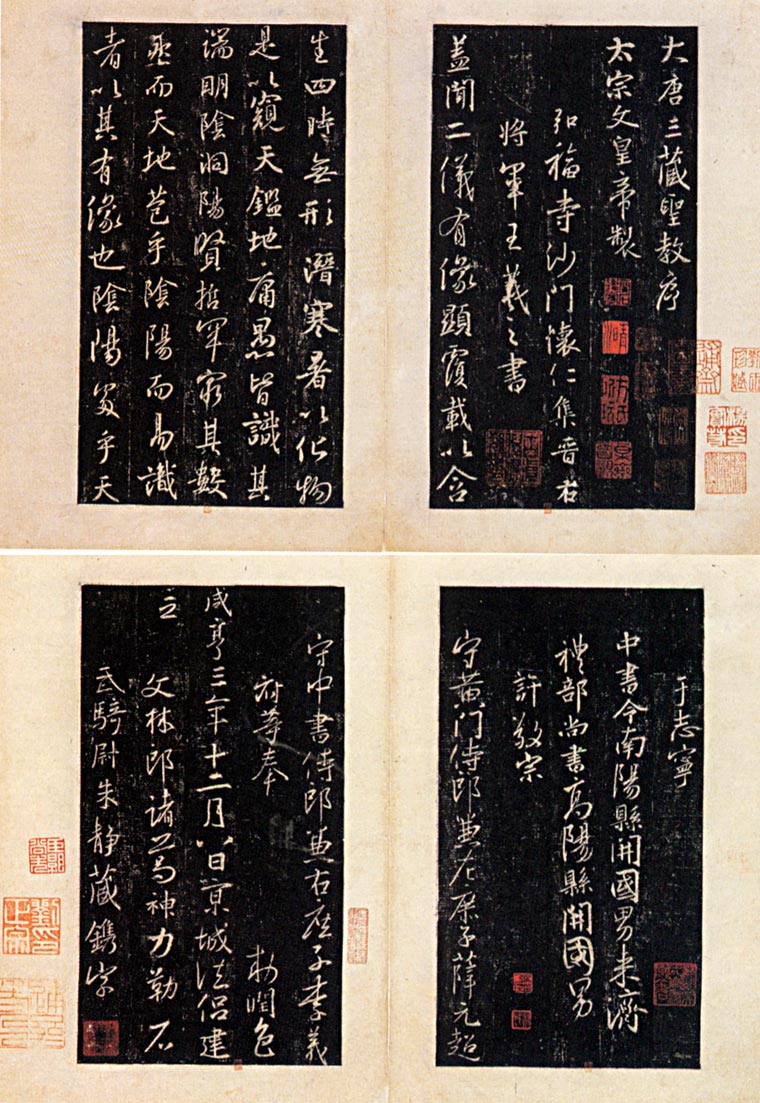 大唐三藏聖教序
太宗文皇帝製
弘福寺沙門懷仁集晉右
將軍王羲之書
蓋聞二儀有像顯覆載以含
生四時無形潛寒暑以化物
是以窺天鑑地庸愚皆識其
端明陰洞陽賢哲罕窮其數
然而天地苞乎陰陽而易識
者以其有像也陰陽處乎天
于志寧
中書令南陽縣開國男来濟
禮部尚書高陽縣開國男
許敬宗
守黃門侍郎兼左庶子薛元超
守中書侍郎兼右庶子李義
府等奉 勅潤色
咸亨三年十二月八日京城法侶建
立
文林郎諸葛神力勒石
武騎尉朱靜藏鐫字